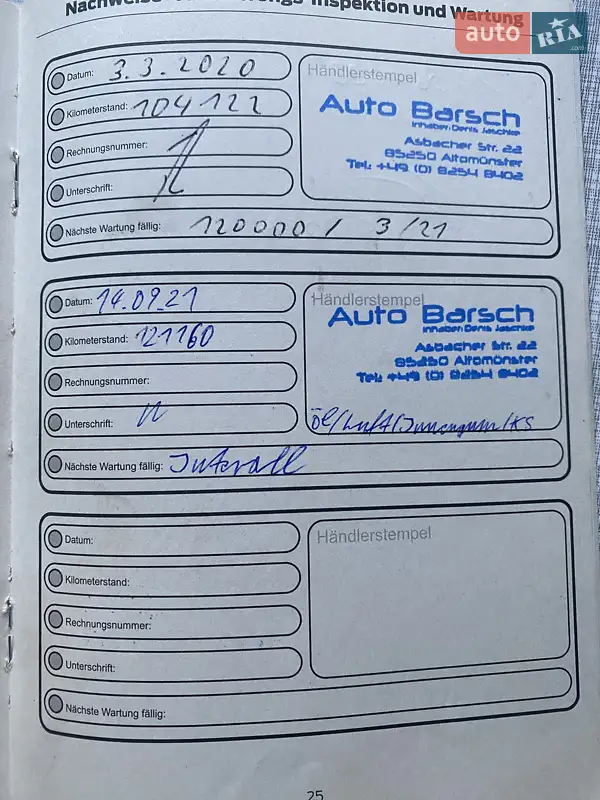 Nachweise
Inspektion und Wartung
auto RIA.com
Datum: 3.3.2020
Kilometerstand: 104122
Rechnungsnummer:
Unterschrift:
Nächste Wartung fällig: 120000 / 3/21
Händlerstempel
Auto Barsch
Inhaber: Denis Jaschke
Asbacher Str. 22
85250 Altomünster
Tel.: +49 (0) 8254 8402
Datum: 14.09.21
Kilometerstand: 121160
Rechnungsnummer:
Unterschrift:
Nächste Wartung fällig: Intervall
Händlerstempel
Auto Barsch
Inhaber: Denis Jaschke
Asbacher Str. 22
85250 Altomünster
Tel.: +49 (0) 8254 8402
Öl/Luft/Innenraum/KS
Datum:
Kilometerstand:
Rechnungsnummer:
Unterschrift:
Nächste Wartung fällig:
Händlerstempel
25